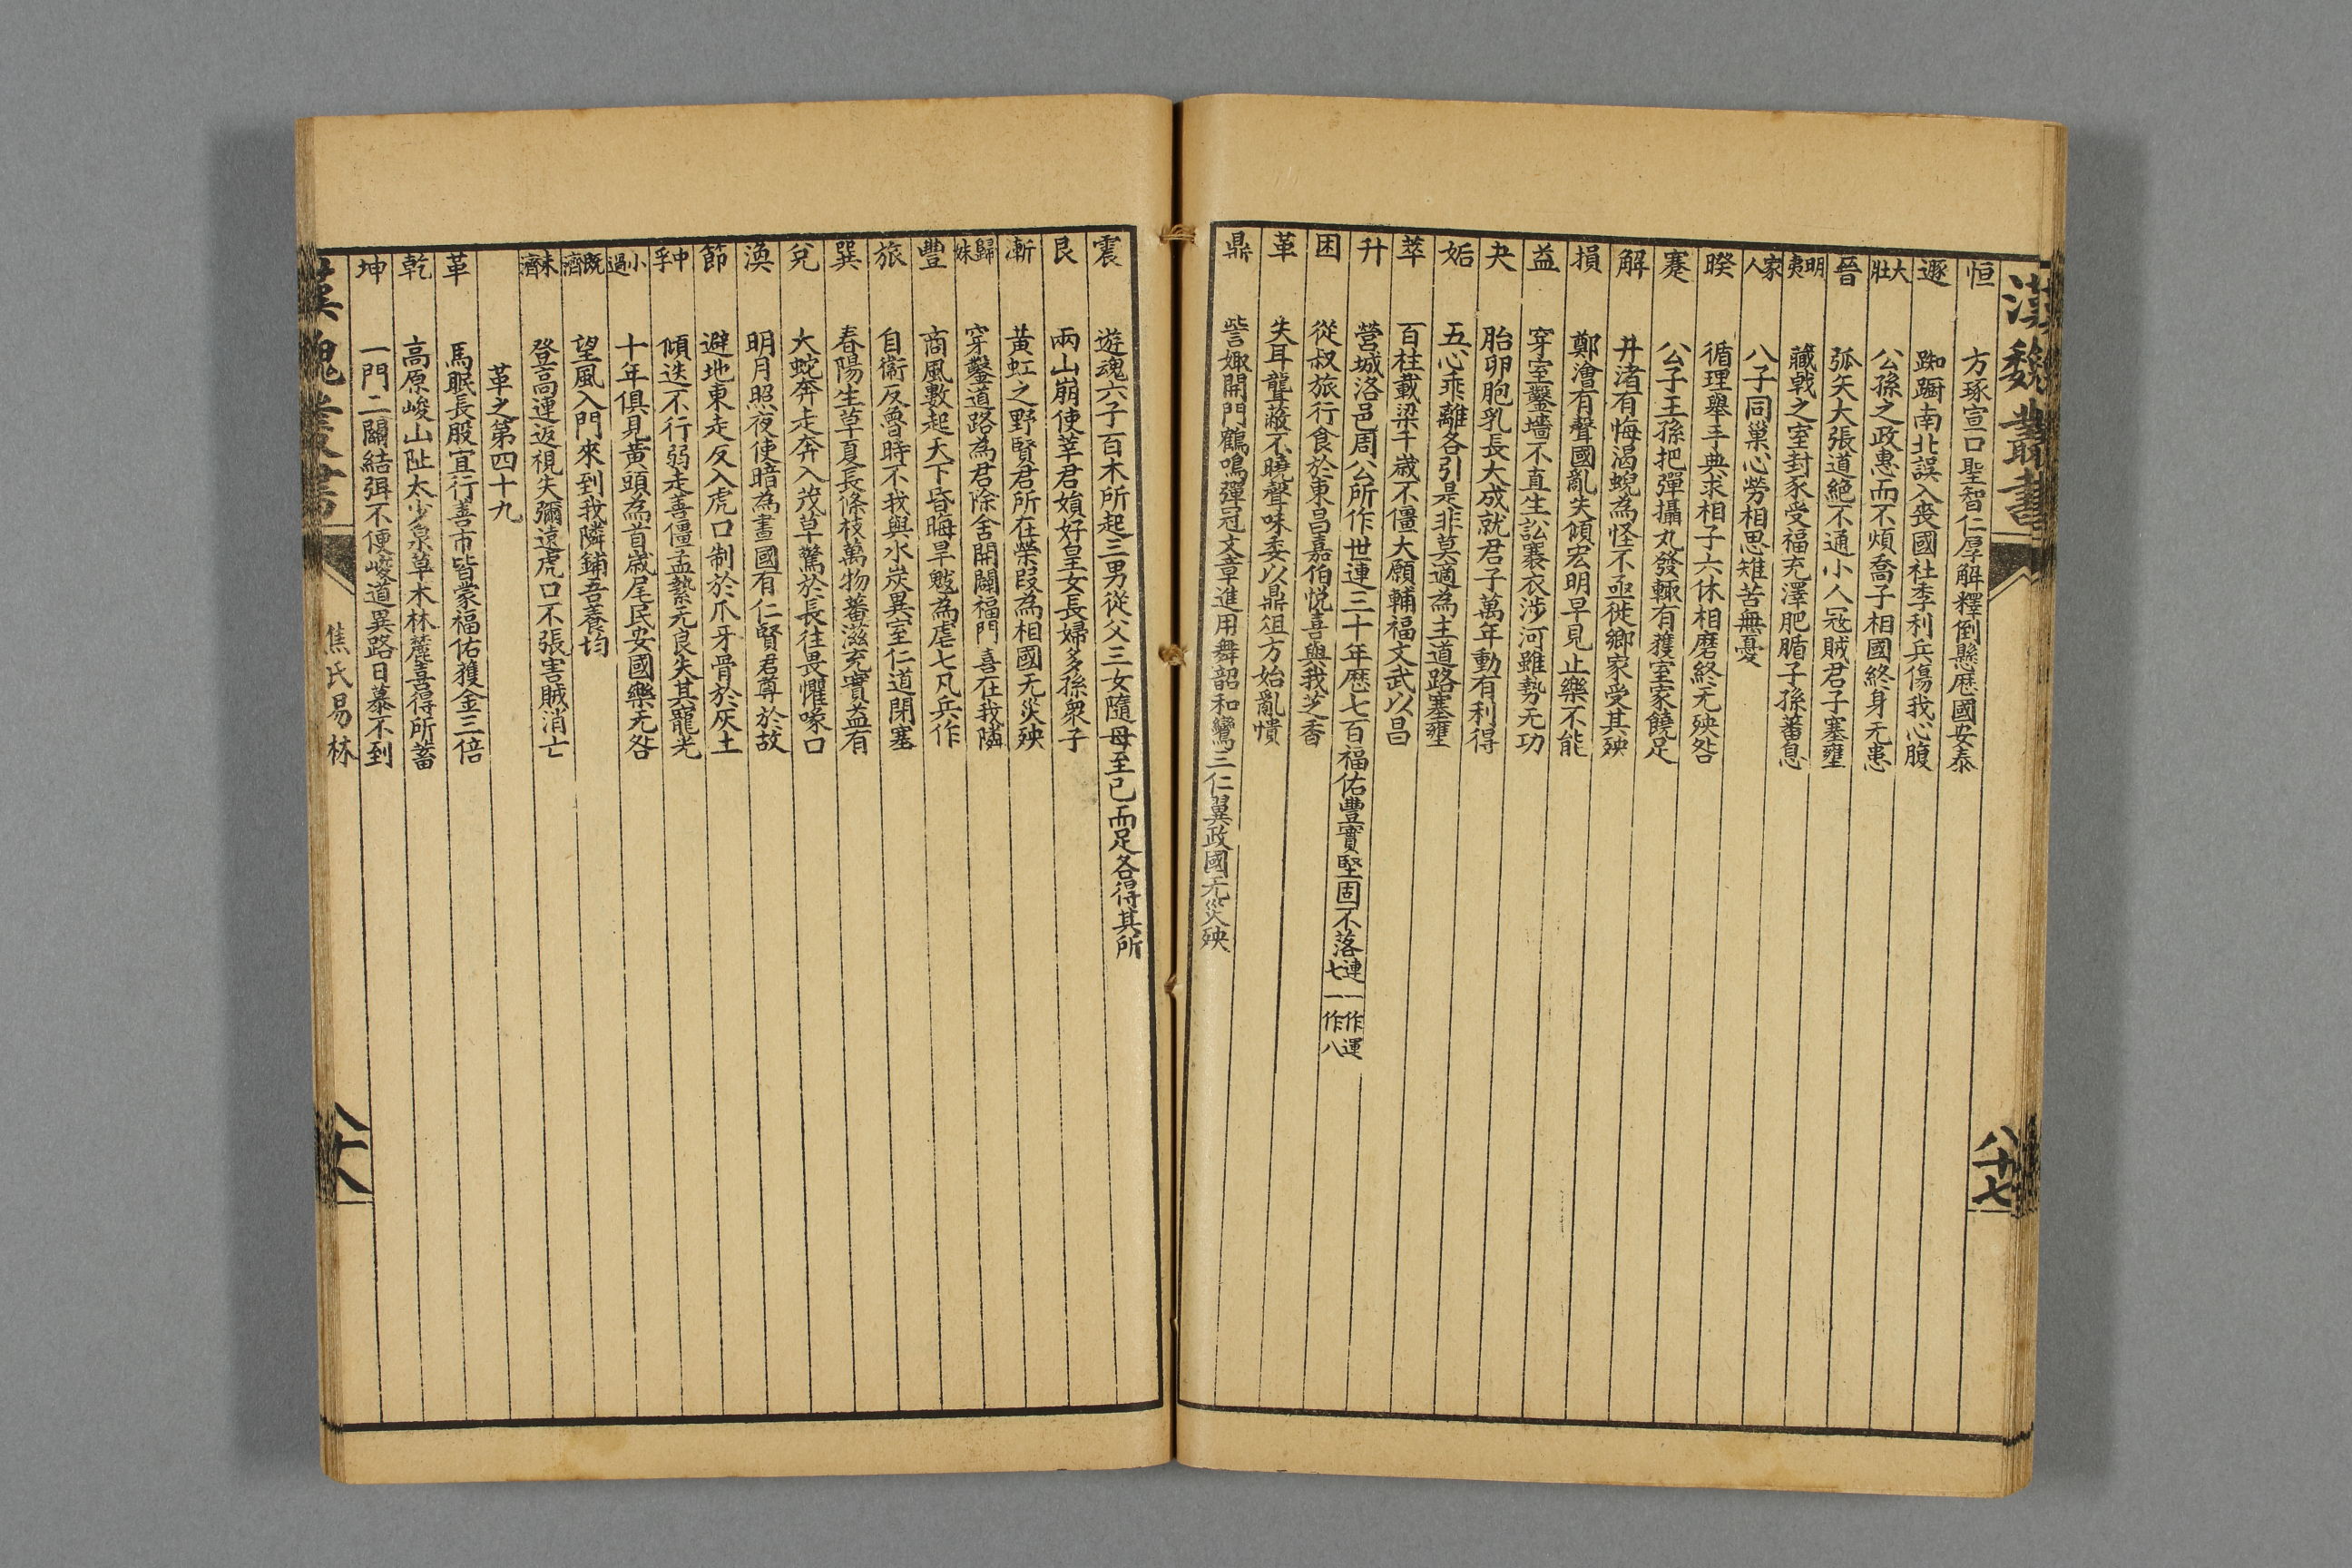 漢魏叢書
八十七
恒 方琢宣口聖智仁厚解釋倒懸歷國安泰
遯 踟躕南北誤入喪國社季利兵傷我心腹
大壯 公孫之政惠而不煩喬子相國終身无患
晉 弧矢大張道絕不通小人冦賊君子塞壅
明夷 藏戟之室封豕受福充澤肥腯子孫蕃息
家人 八子同巢心勞相思雉苦無憂
睽 循理舉手典求相子六休相磨終无殃咎
蹇 公子王孫把彈攝丸發輙有獲室家饒足
解 井渚有悔渴蜺為怪不亟徙鄉家受其殃
損 鄭澮有聲國亂失傾宏明早見止樂不能
益 穿室鑿墻不直生訟褰衣涉河雖勢无功
夬 胎卵胞乳長大成就君子萬年動有利得
姤 五心乖離各引是非莫適為主道路塞壅
萃 百柱載梁千歲不僵大願輔福文武以昌
升 營城洛邑周公所作世連三十年歷七百福佑豐實堅固不落連一作運七一作八
困 從叔旅行食於東昌嘉伯悅喜與我芝香
革 失耳聾蔽不曉聲味委以鼎俎方始亂憒
鼎 訾娵開門鶴鳴彈冠文章進用舞韶和鸞三仁翼政國无災殃
震 遊魂六子百木所起三男從父三女隨母至已而足各得其所
艮 兩山崩使莘君媍好皇女長婦多孫衆子
漸 黃虹之野賢君所在榮叚為相國无災殃
歸妹 穿鑿道路為君除舍開闢福門喜在我隣
豐 商風數起天下昏晦旱魃為虐七凡兵作
旅 自衞反魯時不我與水炭異室仁道閉塞
巽 春陽生草夏長條枝萬物蕃滋充實益有
兌 大蛇奔走奔入茂草驚於長往畏懼喙口
渙 明月照夜使暗為晝國有仁賢君尊於故
節 避地東走反入虎口制於爪牙骨於灰土
中孚 傾迭不行弱走善僵孟縶无良失其寵光
小過 十年俱見黃頭為首歲尾民安國樂无咎
既濟 望風入門來到我隣鋪吾養均
未濟 登高連返視失彌遠虎口不張害賊消亡
革之第四十九
革 馬眠長股宜行善市皆蒙福佑獲金三倍
乾 高原峻山阯太少泉草木林麓喜得所蓄
坤 一門二關結弭不便峻道異路日暮不到
漢魏叢書
焦氏易林
八十八